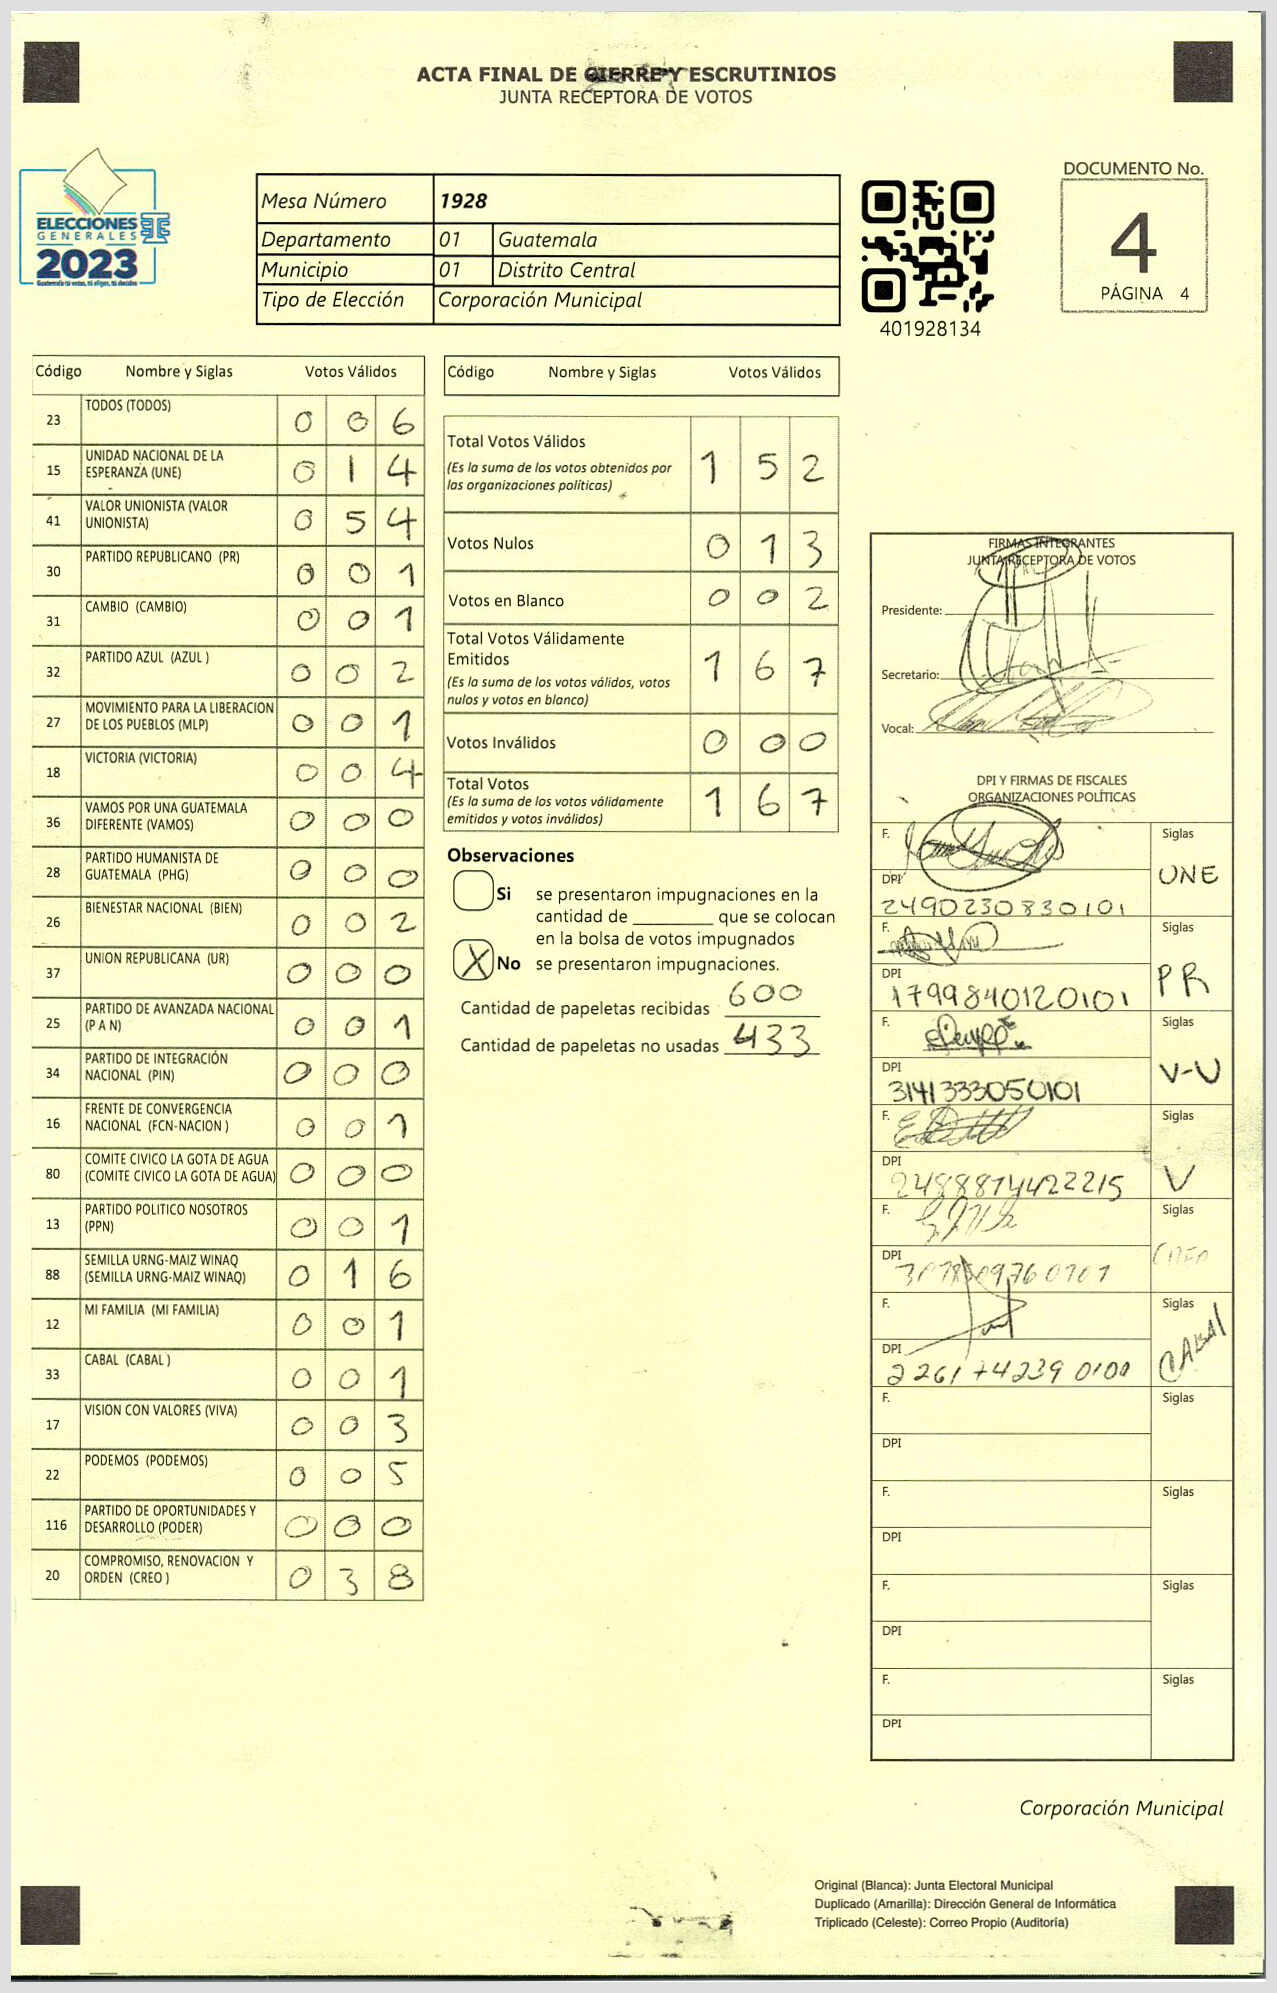 ACTA FINAL DE CIERRE Y ESCRUTINIOS
JUNTA RECEPTORA DE VOTOS
ELECCIONES
GENERALES
2023
Guatemala tú votas, tú eliges, tú decides
Mesa Número 1928
Departamento 01 Guatemala
Municipio 01 Distrito Central
Tipo de Elección Corporación Municipal
401928134
DOCUMENTO No.
4
PÁGINA 4
Código Nombre y Siglas Votos Válidos
23 TODOS (TODOS) 0 0 6
15 UNIDAD NACIONAL DE LA
ESPERANZA (UNE) 0 1 4
41 VALOR UNIONISTA (VALOR
UNIONISTA) 0 5 4
30 PARTIDO REPUBLICANO (PR) 0 0 1
31 CAMBIO (CAMBIO) 0 0 1
32 PARTIDO AZUL (AZUL ) 0 0 2
27 MOVIMIENTO PARA LA LIBERACION
DE LOS PUEBLOS (MLP) 0 0 1
18 VICTORIA (VICTORIA) 0 0 4
36 VAMOS POR UNA GUATEMALA
DIFERENTE (VAMOS) 0 0 0
28 PARTIDO HUMANISTA DE
GUATEMALA (PHG) 0 0 0
26 BIENESTAR NACIONAL (BIEN) 0 0 2
37 UNION REPUBLICANA (UR) 0 0 0
25 PARTIDO DE AVANZADA NACIONAL
(P A N) 0 0 1
34 PARTIDO DE INTEGRACIÓN
NACIONAL (PIN) 0 0 0
16 FRENTE DE CONVERGENCIA
NACIONAL (FCN-NACION ) 0 0 1
80 COMITE CIVICO LA GOTA DE AGUA
(COMITE CIVICO LA GOTA DE AGUA) 0 0 0
13 PARTIDO POLITICO NOSOTROS
(PPN) 0 0 1
88 SEMILLA URNG-MAIZ WINAQ
(SEMILLA URNG-MAIZ WINAQ) 0 1 6
12 MI FAMILIA (MI FAMILIA) 0 0 1
33 CABAL (CABAL ) 0 0 1
17 VISION CON VALORES (VIVA) 0 0 3
22 PODEMOS (PODEMOS) 0 0 5
116 PARTIDO DE OPORTUNIDADES Y
DESARROLLO (PODER) 0 0 0
20 COMPROMISO, RENOVACION Y
ORDEN (CREO ) 0 3 8
Código Nombre y Siglas Votos Válidos
Total Votos Válidos 1 5 2
(Es la suma de los votos obtenidos por
las organizaciones políticas)
Votos Nulos 0 1 3
Votos en Blanco 0 0 2
Total Votos Válidamente
Emitidos 1 6 7
(Es la suma de los votos válidos, votos
nulos y votos en blanco)
Votos Inválidos 0 0 0
Total Votos 1 6 7
(Es la suma de los votos válidamente
emitidos y votos inválidos)
Observaciones
Si se presentaron impugnaciones en la
cantidad de ________ que se colocan
en la bolsa de votos impugnados
X No se presentaron impugnaciones.
Cantidad de papeletas recibidas 600
Cantidad de papeletas no usadas 433
FIRMAS INTEGRANTES
JUNTA RECEPTORA DE VOTOS
Presidente:
Secretario:
Vocal:
DPI Y FIRMAS DE FISCALES
ORGANIZACIONES POLÍTICAS
F. Siglas
DPI UNE
2490230830101
F. Siglas
DPI PR
1799840120101
F. Siglas
DPI V-U
3141333050101
F. Siglas
DPI V
2488874422215
F. Siglas
DPI CREO
F. Siglas
DPI CABAL
2261 74239 0100
F. Siglas
DPI
F. Siglas
DPI
F. Siglas
DPI
F. Siglas
DPI
Corporación Municipal
Original (Blanca): Junta Electoral Municipal
Duplicado (Amarilla): Dirección General de Informática
Triplicado (Celeste): Correo Propio (Auditoría)